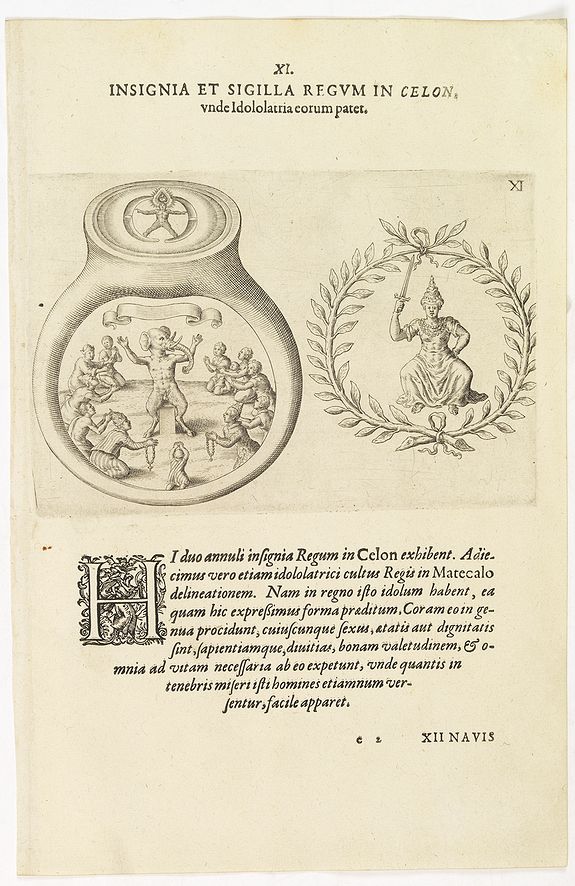 XI.
INSIGNIA ET SIGILLA REGVM IN CELON,
vnde Idololatria eorum patet.
XI
HI duo annuli insignia Regum in Celon exhibent. Adie-
cimus vero etiam idololatrici cultus Regis in Matecalo
delineationem. Nam in regno isto idolum habent, ea
quam hic expreßimus forma præditum. Coram eo in ge-
nua procidunt, cuiuscunque sexus, ætatis aut dignitatis
sint, sapientiamque, diuitias, bonam valetudinem, & o-
mnia ad vitam necessaria ab eo expetunt, vnde quantis in
tenebris miseri isti homines etiamnum ver-
sentur, facile apparet.
e 2 XII NAVIS